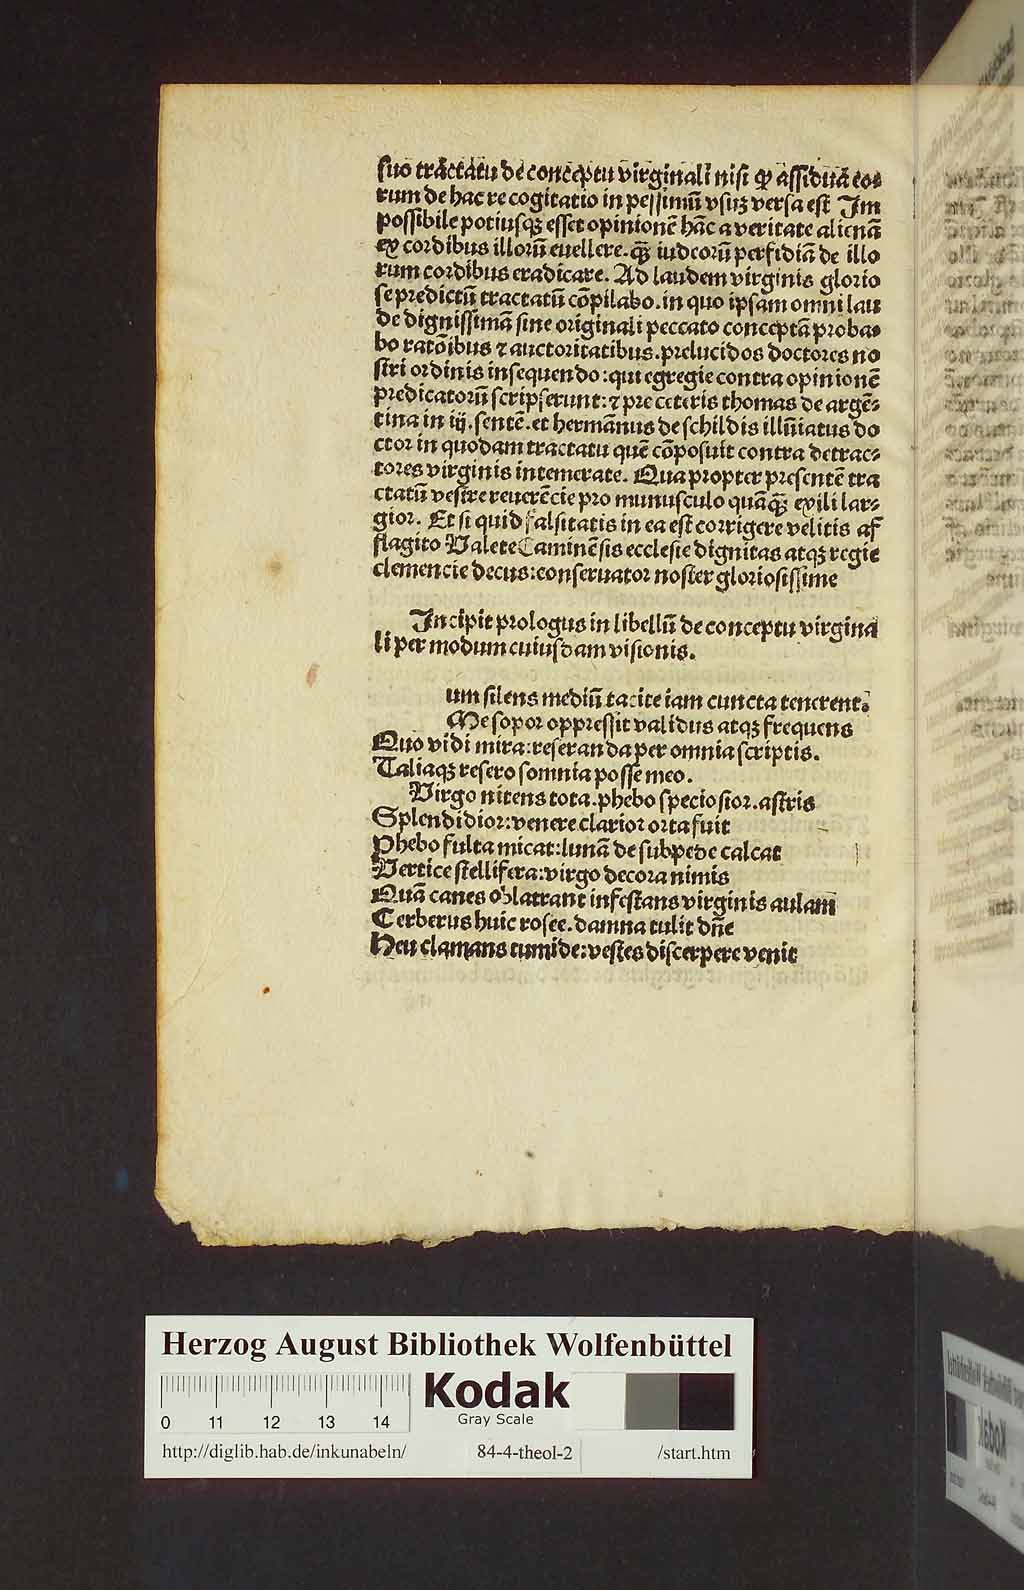 suo tractatu de conceptu virginali nisi ꝙ assiduā eo⸗
rum de hac re cogitatio in pessimū vsuꝫ versa est Im
possibile potiusqꝫ esset opinionē hāc a veritate alienā
ex cordibus illorū euellere. qꝫ̄ iudeorū perfidiā de illo
rum cordibus eradicare. Ad laudem virginis glorio
se predictū tractatū cōpilabo. in quo ipsam omni lau
de dignissimā sine originali peccato conceptā proba⸗
bo ratōibus ⁊ auctoritatibus. prelucidos doctores no
stri ordinis insequendo: qui egregie contra opinionē
predicatorū scripserunt: ⁊ pre ceteris thomas de argē⸗
tina in iij. sentē. et hermānus de schildis illūiatus do
ctor in quodam tractatu quē cōposuit contra detrac⸗
tores virginis intemerate. Qua propter presentē tra
ctatū vestre reuerēcie pro munusculo quāqꝫ̄ exili lar⸗
gior. Et si quid falsitatis in ea est corrigere velitis af
flagito Valete Caminēsis ecclesie dignitas atqꝫ regie
clemencie decus: conseruator noster gloriosissime
Incipit prologus in libellū de conceptu virgina
li per modum cuiusdam visionis.
um silens mediū tacite iam cuncta tenerent.
Me sopor oppressit validus atqꝫ frequens
Quo vidi mira: reseranda per omnia scriptis.
Taliaqꝫ resero somnia posse meo.
Virgo nitens tota. phebo speciosior. astris
Splendidior: venere clarior orta fuit
Phebo fulta micat: lunā de subpede calcat
Vertice stellifera: virgo decora nimis
Quā canes oblatrant infestans virginis aulam
Cerberus huic rosee. damna tulit dn̄e
Heu clamans tumide: vestes discerpere venit
Herzog August Bibliothek Wolfenbüttel
Kodak
Gray Scale
0 11 12 13 14
http://diglib.hab.de/inkunabeln/ 84-4-theol-2 /start.htm